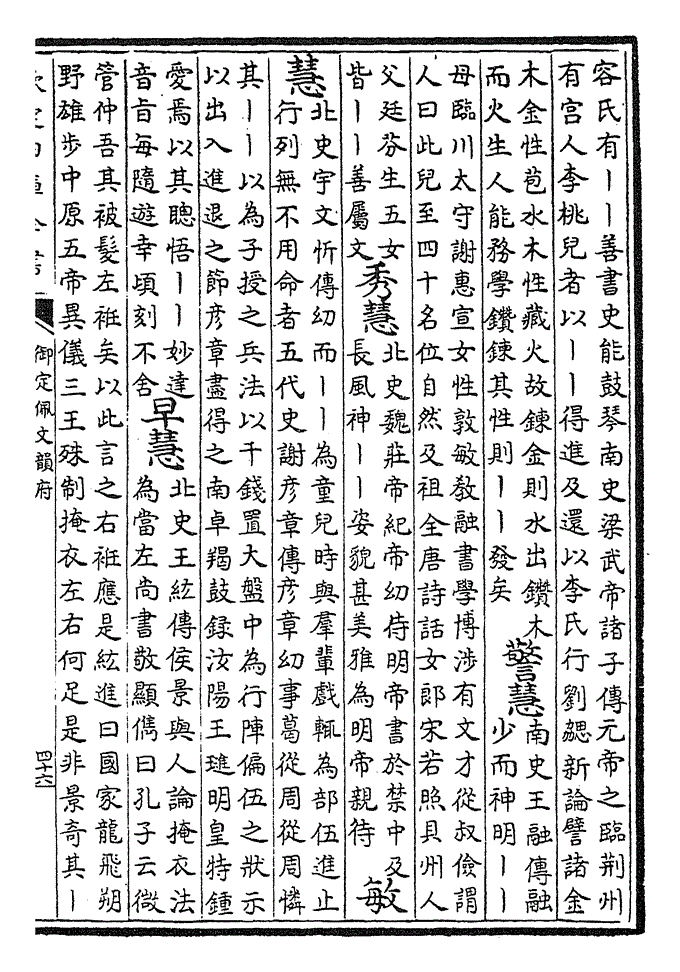 容氏有丨丨善書史能鼓琴南史梁武帝諸子傳元帝之臨荆州
有宫人李桃兒者以丨丨得進及還以李氏行劉勰新論譬諸金
木金性苞水木性藏火故鍊金則水出鑽木
而火生人能務學鑽鍊其性則丨丨發矣
警慧
南史王融傳融
少而神明丨丨
母臨川太守謝惠宣女性敦敏敎融書學博涉有文才從叔儉謂
人曰此兒至四十名位自然及祖全唐詩話女郎宋若照貝州人
父廷芬生五女
皆丨丨善屬文
秀慧
北史魏莊帝紀帝幼侍明帝書於禁中及
長風神丨丨姿貌甚美雅為明帝親待
敏
慧
北史宇文忻傳幼而丨丨為童兒時與羣輩戲輒為部伍進止
行列無不用命者五代史謝彦章傳彦章幼事葛從周從周憐
其丨丨以為子授之兵法以千錢置大盤中為行陣偏伍之狀示
以出入進退之節彦章盡得之南卓羯鼓録汝陽王璡明皇特鍾
愛焉以其聰悟丨丨妙達
音旨每隨遊幸頃刻不舍
早慧
北史王紘傳侯景與人論掩衣法
為當左尚書敬顯儁曰孔子云微
管仲吾其被髮左袵矣以此言之右袵應是紘進曰國家龍飛朔
野雄步中原五帝異儀三王殊制掩衣左右何足是非景奇其丨
御定佩文韻府
四十六